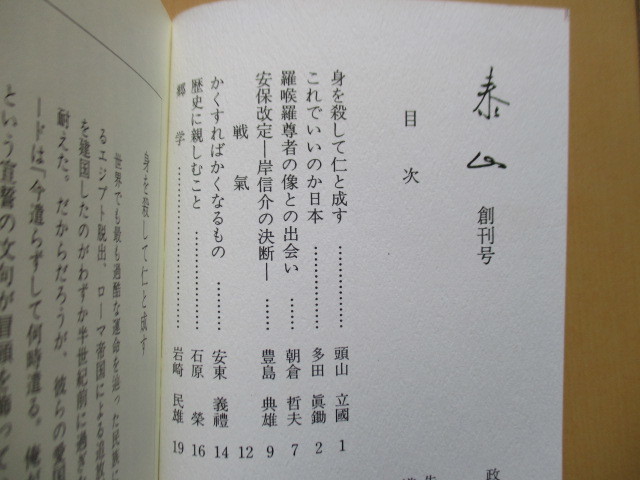 泰山 創刊号
目次
身を殺して仁と成す ………… 頭山 立國 1
これでいいのか日本 ………… 多田 眞鋤 2
羅喉羅尊者の像との出会い …… 朝倉 哲夫 7
安保改定―岸信介の決断― …… 豊島 典雄 9
戦氣 12
かくすればかくなるもの ……… 安東 義禮 14
歴史に親しむこと ………… 石原 榮 16
郷学 ………………… 岩崎 民雄 19
身を殺して仁と成す
世界でも最も過酷な運命を辿った民族に
るエジプト脱出、ローマ帝国による追放
を建国したのがわずか半世紀前に過ぎな
耐えた。だからだろうが、彼らの愛国
ードは「今遣らずして何時遣る。俺が
という宣誓の文句が冒頭を飾って
政